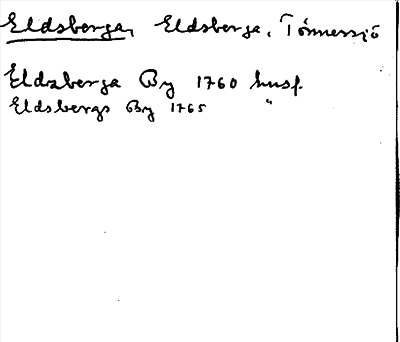 Eldsberga, Eldsberga, Tönnersjö
Eldzberga By 1760 husf.
Eldsbergs By 1765 "